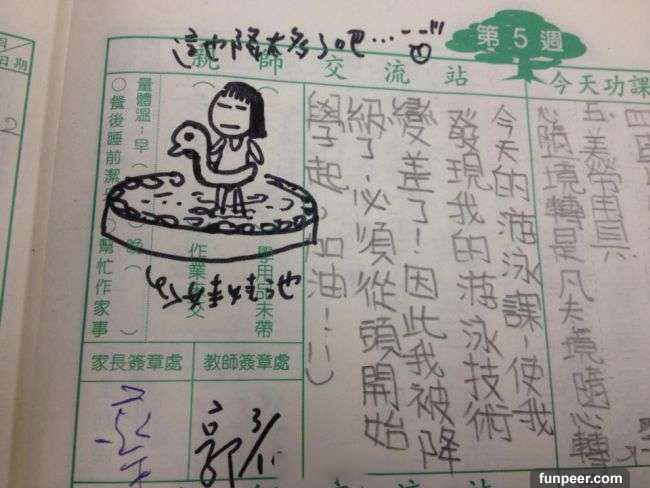 第5週
這也降太多了吧...
今天功課
親師交流站
日期
5.美勞用具
心隨境轉是凡夫境隨心轉
今天的游泳課,使我
發現我的游泳技術
變差了!因此我被降
級了,必須從頭開始
學起。加油!
學用品未帶
作業 交
量體溫:早(
晚( )
○餐後睡前潔
幫忙作家事
教師簽章處
家長簽章處
郭
funpeer.com